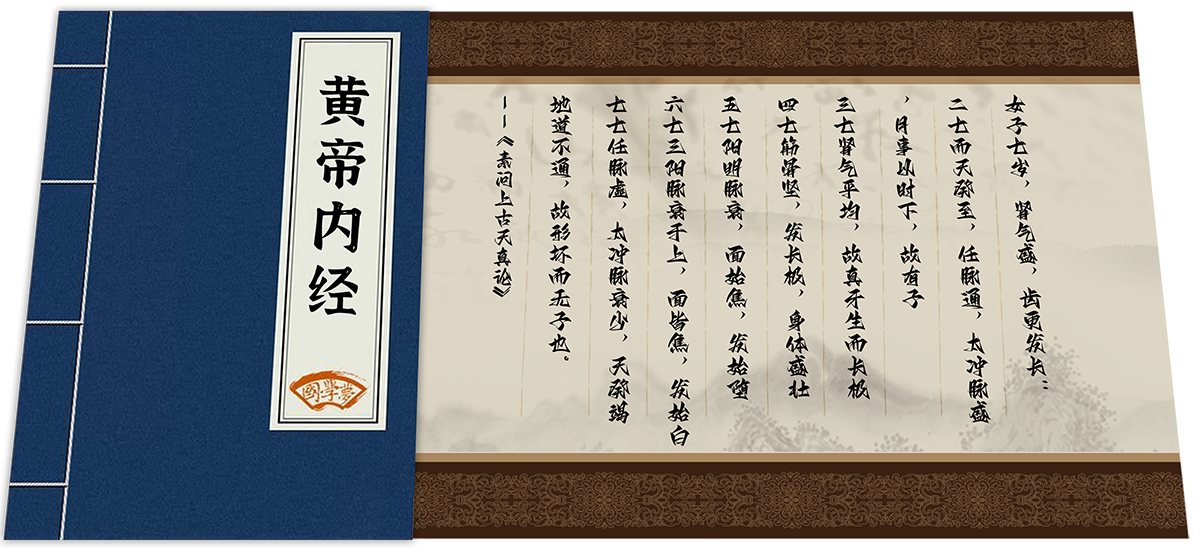 黄帝内经
國學夢
女子七岁，肾气盛，齿更发长；
二七而天癸至，任脉通，太冲脉盛
，月事以时下，故有子
三七肾气平均，故真牙生而长极
四七筋骨坚，发长极，身体盛壮
五七阳明脉衰，面始焦，发始堕
六七三阳脉衰于上，面皆焦，发始白
七七任脉虚，太冲脉衰少，天癸竭
地道不通，故形坏而无子也。
——《素问上古天真论》